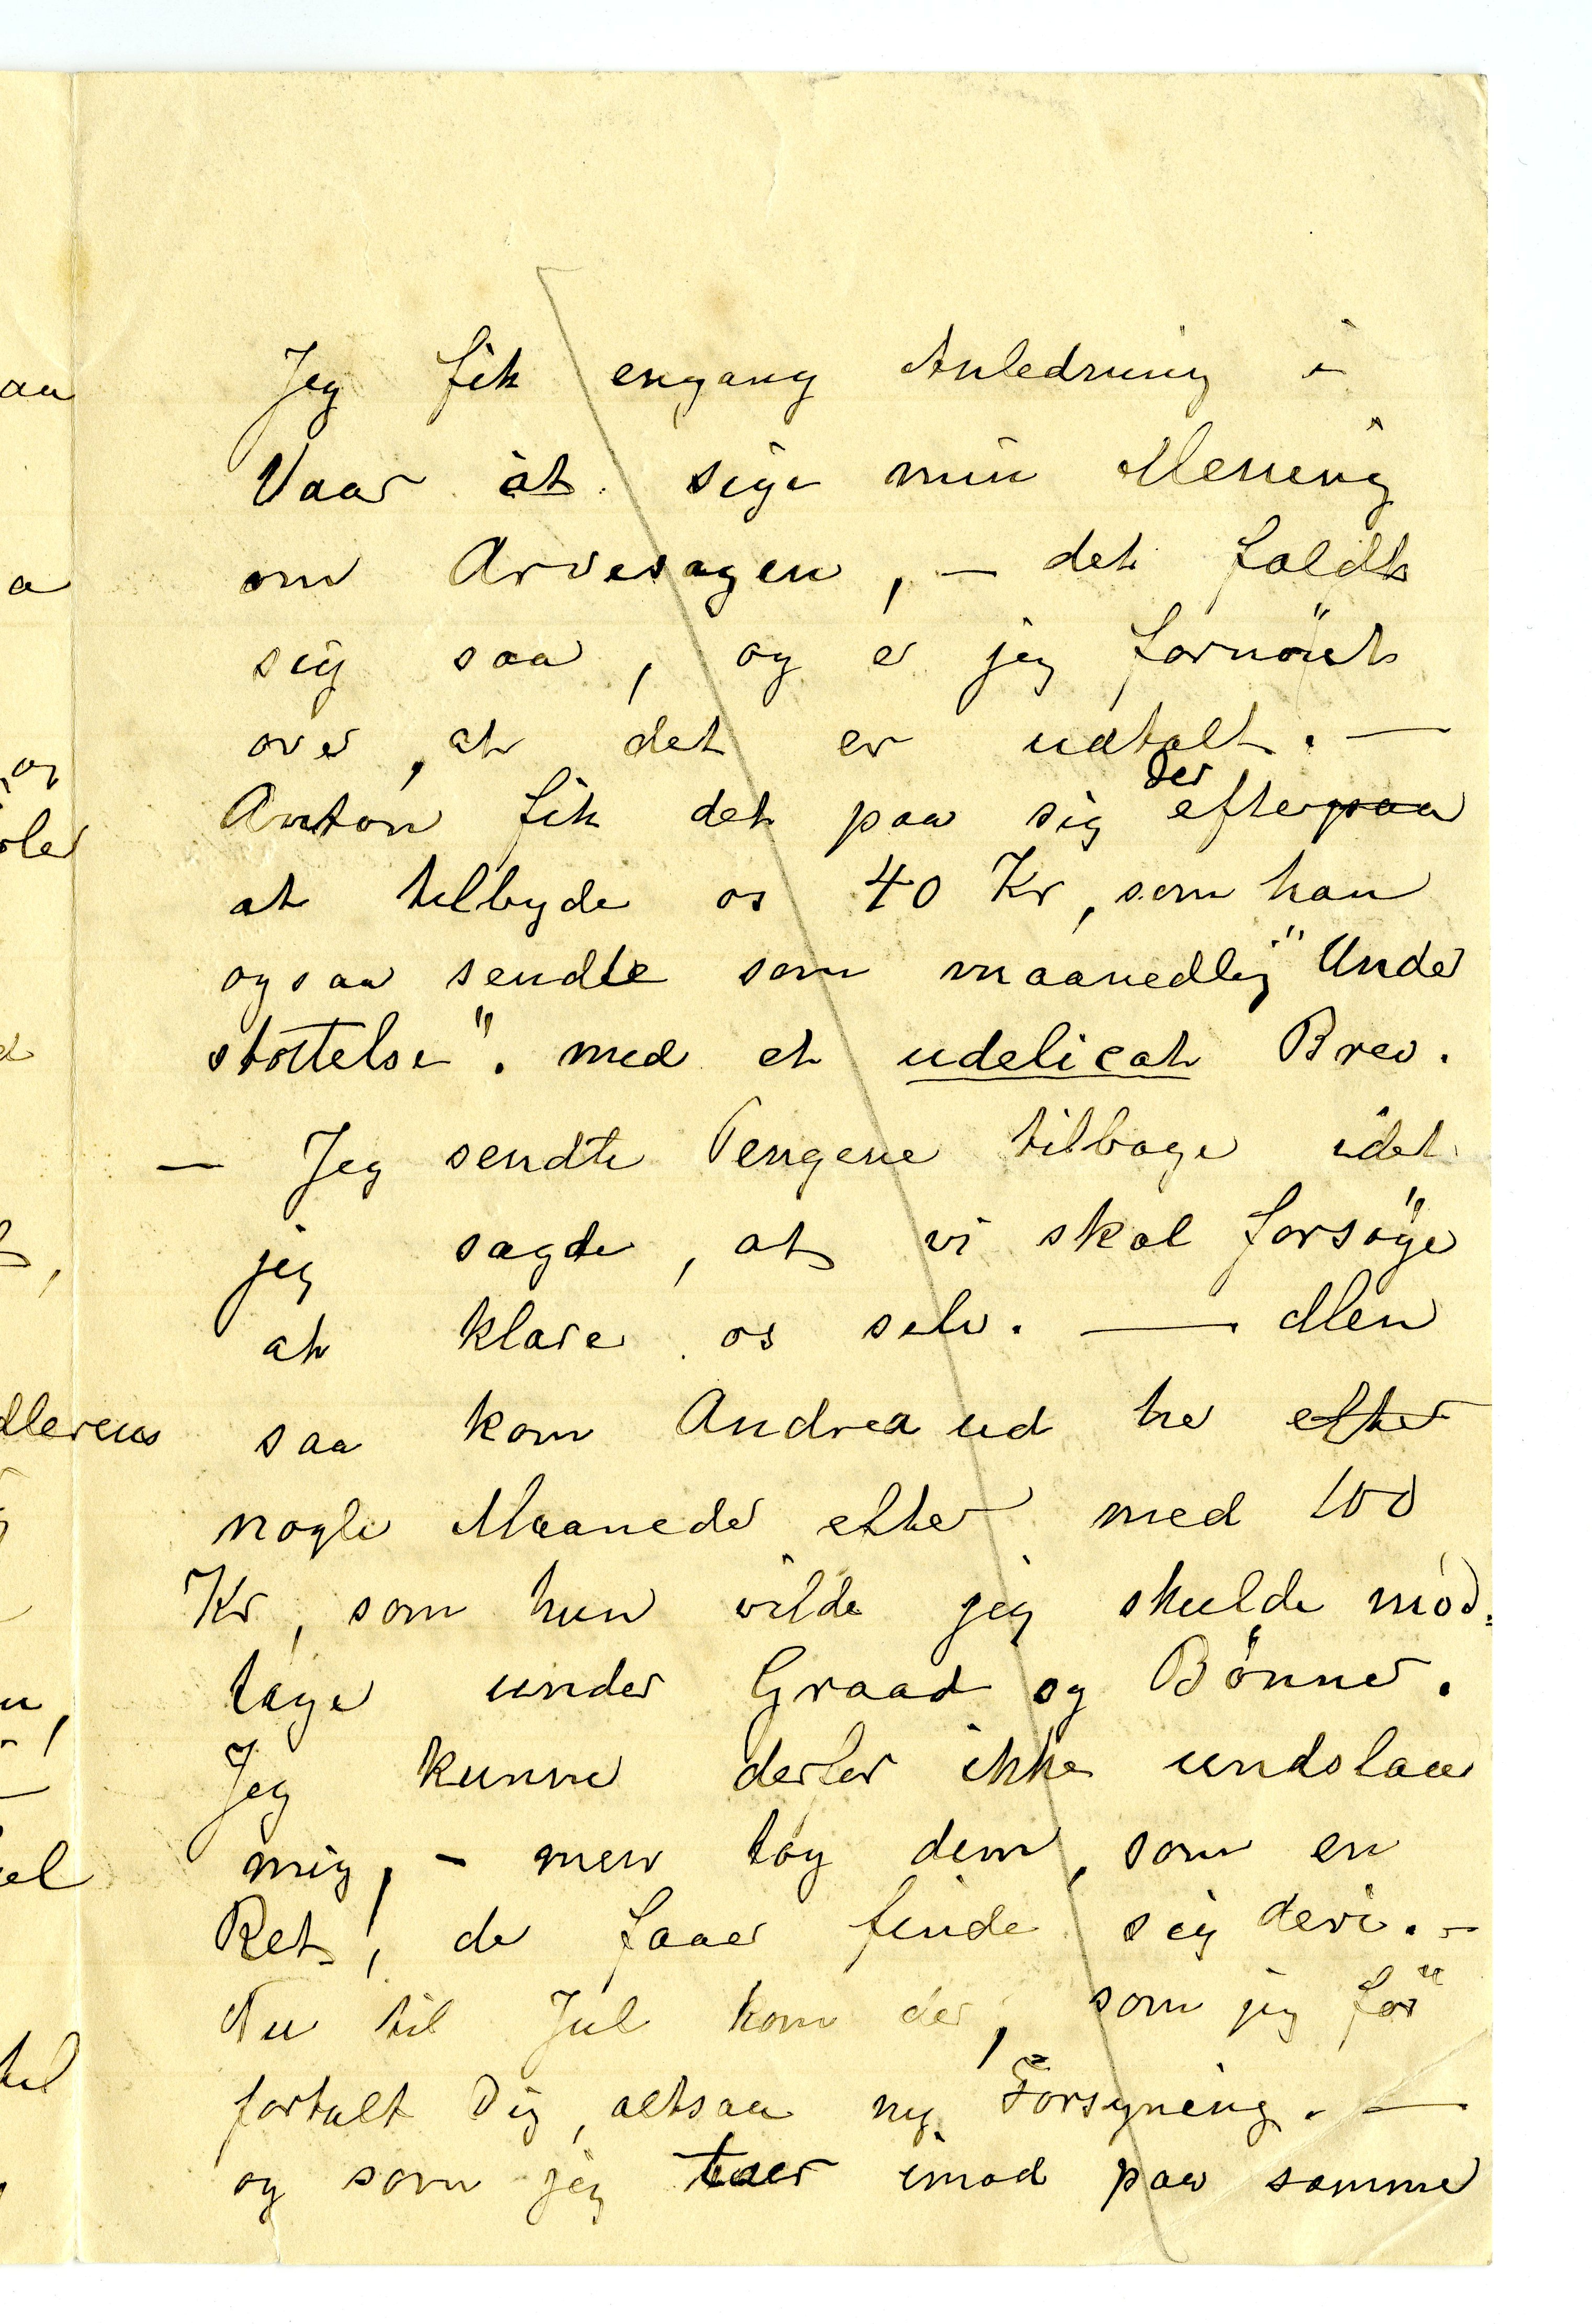 Jeg fik engang Anledning i
Vaar at sige min Mening
om Arvesagen, — det faldt
sig saa, og er jeg fornöiet
over, at det er udtalt. —
Anton fik det paa sig der efterpaa
at tilbyde os 40 Kr, som han
ogsaa sendte som maanedlig "Under
støttelse". med et udelicat Brev.
— Jeg sendte Pengene tilbage idet
jeg sagde, at vi skal forsöge
at klare os selv. — Men
saa kom Andrea ud her efter
nogle Maaneder efter med 100
Kr, som hun vilde jeg skulde mod=
tage under Graad og Bönner.
Jeg kunne derfor ikke undslaa
mig, - men tog dem, som en
Ret, de faaer finde sig deri. -
Nu til Jul kom der, som jeg för
fortalt Dig, altsaa ny Forsyning. —
og som jeg taer imod paa samme